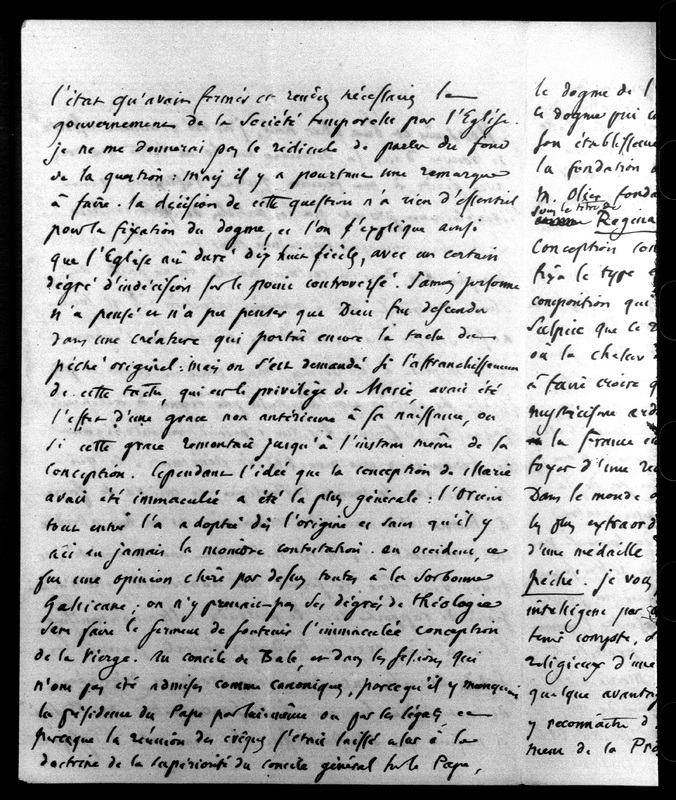 l'état qu'avait formés et rendus nécessaires le
gouvernement de la société temporelle par l'Eglise.
je ne me donnerai pas le ridicule de parler du fond
de la question : mais il y a pourtant une remarque
à faire. la décision de cette question n'a rien d'essentiel
pour la fixation du dogme, et l'on s'explique ainsi
que l'Eglise ait duré dix huit siècles, avec un certain
dégré d'indécision sur le point controversé. Jamais personne
n'a pensé et n'a pu penser que Dieu fut descendu
dans une créature qui portât encore la tache du
péché originel : mais on s'est demandé si l'affranchissement
de cette tache, qui est le privilège de Marie avait été
l'effet d'une grace non antérieure à sa naissance, ou
si cette grace remontait jusqu'à l'instant même de sa
conception. Cependant l'idée que la conception de Marie
avait été immaculée a été la plus générale : l'Orient
tout entier l'a adoptée dès l'origine et sans qu'il y
ait eu jamais la moindre contestation. en occident, ce
fut une opinion chère par dessus toutes à la Sorbonne
Gallicane ; on n'y prenait pas ses dégrés de théologie
sans faire le serment de soutenir l'immaculée conception
de la Vierge. Au concile de Bale, et dans les sessions qui
n'ont pas été admises comme canoniques, parcequ'il y manquait
la présidence du Pape par lui-même ou par ses légats, et
parceque la réunion des évêques s'était laissé aller à la
doctrine de la supériorité du concile général sur le Pape,
le dogme de l
ce dogme qui
son établisseme
la fondation
M. Olier fonda
sous le titre de
Regina
Conception con
fixa le type
composition qui
Sulpice que ce
ou la chaleur
à faire croire q
mysticisme ard
la France
foyer d'une
Dans le monde
les plus extraord
d'une médaille
péché. je vous
intelligent par
tenir compte,
religieux d'une
quelque avantag
y reconnaître d
ment de la Pro